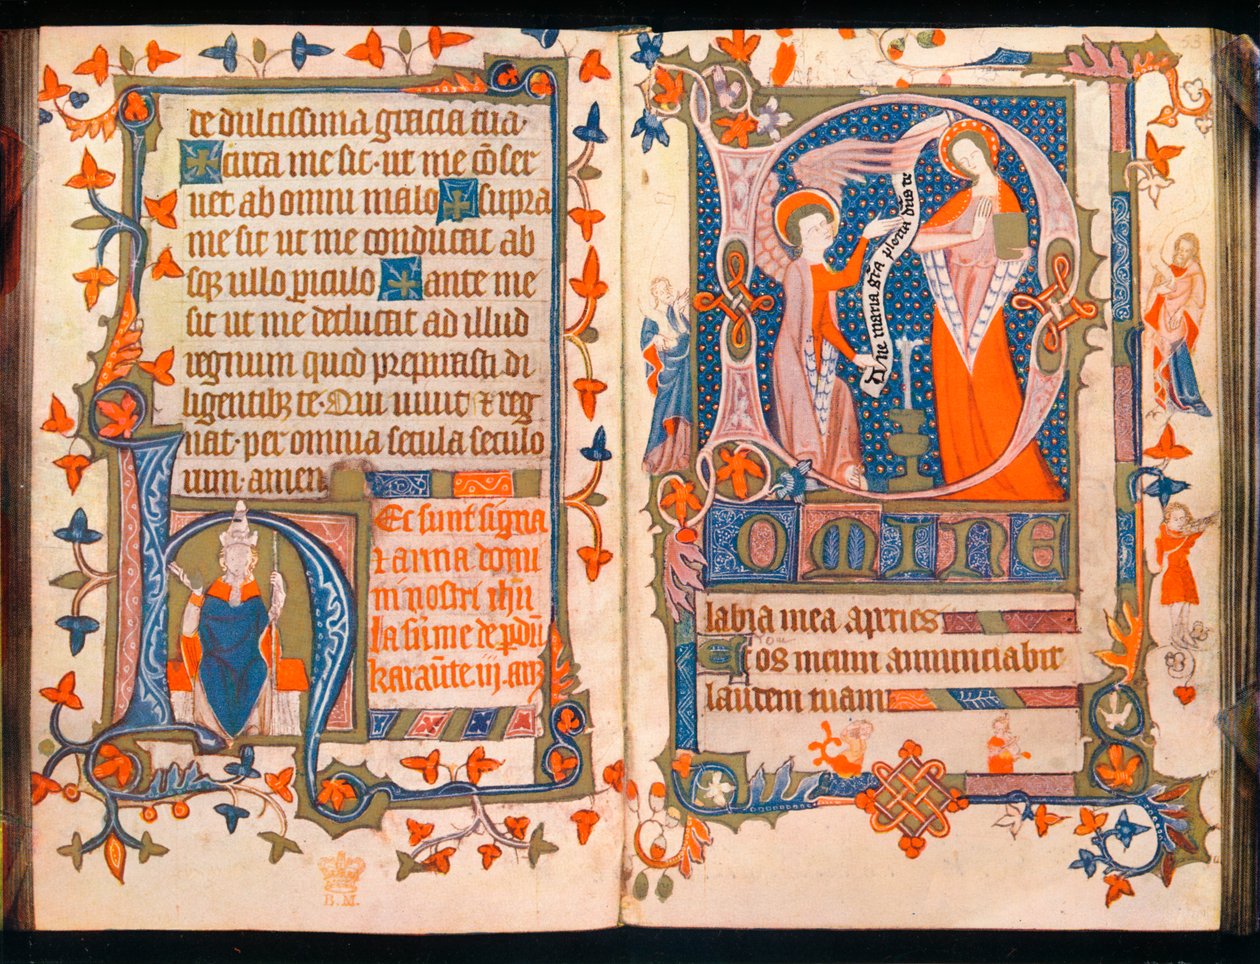 te dulcissima gracia tua.
circa me sit. ut me cōser
uet ab omni malo supra
me sit ut me conducat ab
sqȝ ullo piculo ante me
sit ut me deducat ad illud
regnum quod preparasti di
ligentibȝ te. Qui uiuit ⁊ reg
nat. per omnia secula seculo
rum. amen
Ec sunt signa
⁊ arma domi
ni nostri
B.M.
53
Aue maria grā plena dn̄s te
Domine
labia mea apries
Et os meum annunciabit
laudem tuam